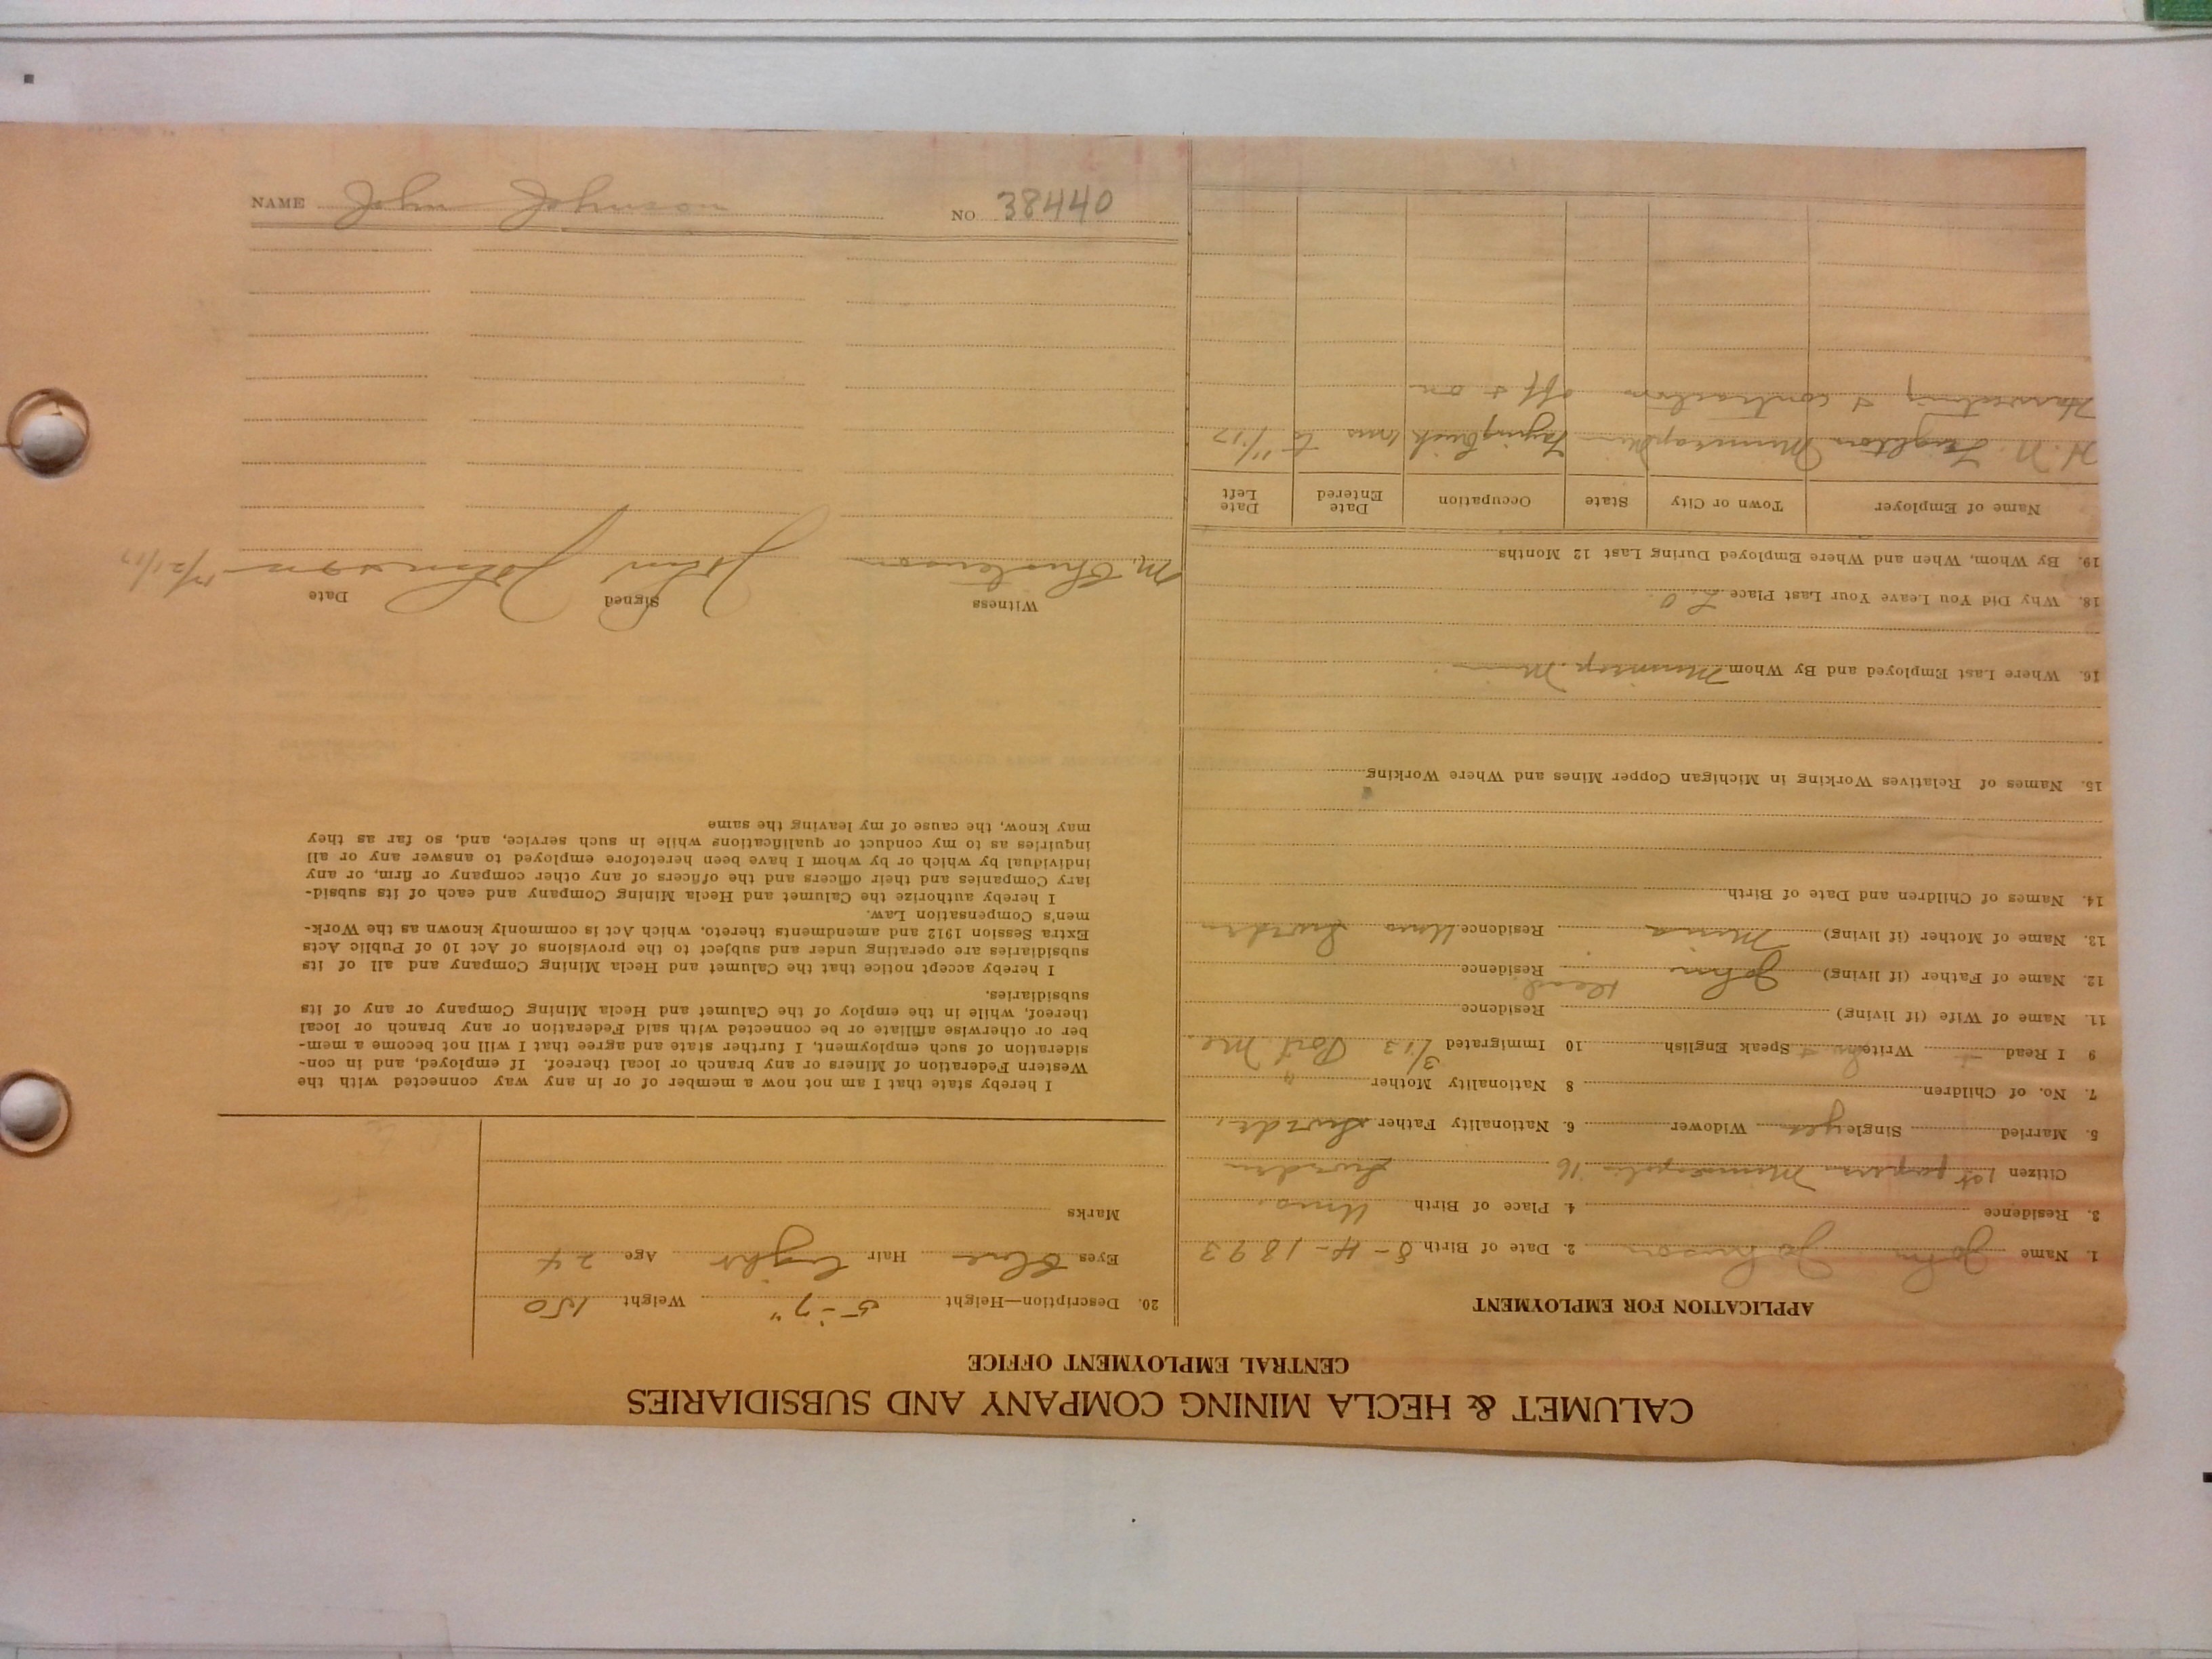 CALUMET & HECLA MINING COMPANY AND SUBSIDIARIES
CENTRAL EMPLOYMENT OFFICE
APPLICATION FOR EMPLOYMENT
1. Name John Johnson 2. Date of Birth 8-4-1893
3. Residence 4. Place of Birth Umea,
Citizen 1st papers Minneapolis 16 Sweden
5. Married Single yes Widower 6. Nationality Father Swede,
7. No. of Children 8 Nationality Mother "
9 I Read Write Speak English 10 Immigrated 3/13 Port Me.
11. Name of Wife (if living) Residence
12. Name of Father (if living) John Residence Dead
13. Name of Mother (if living) Mina Residence Umea Sweden
14. Names of Children and Date of Birth
15. Names of Relatives Working in Michigan Copper Mines and Where Working
16. Where Last Employed and By Whom
18. Why Did You Leave Your Last Place L.O.
19. By Whom, When and Where Employed During Last 12 Months
Name of Employer Town or City State Occupation Date Entered Date Left
H. N. Leighton Minneapolis Minn Laying brick to 11/17
Harvesting & contractors off & on
20. Description—Height 5-7" Weight 150
Eyes Blue Hair Light Age 24
Marks
I hereby state that I am not now a member of or in any way connected with the
Western Federation of Miners or any branch or local thereof. If employed, and in con-
sideration of such employment, I further state and agree that I will not become a mem-
ber or otherwise affiliate or be connected with said Federation or any branch or local
thereof, while in the employ of the Calumet and Hecla Mining Company or any of its
subsidiaries.
I hereby accept notice that the Calumet and Hecla Mining Company and all of its
subsidiaries are operating under and subject to the provisions of Act 10 of Public Acts
Extra Session 1912 and amendments thereto, which Act is commonly known as the Work-
men's Compensation Law.
I hereby authorize the Calumet and Hecla Mining Company and each of its subsid-
iary Companies and their officers and the officers of any other company or firm, or any
individual by which or by whom I have been heretofore employed to answer any or all
inquiries as to my conduct or qualifications while in such service, and, so far as they
may know, the cause of my leaving the same
Witness Signed Date
M. Christenson John Johnson 11/21/17
NAME John Johnson NO. 38440